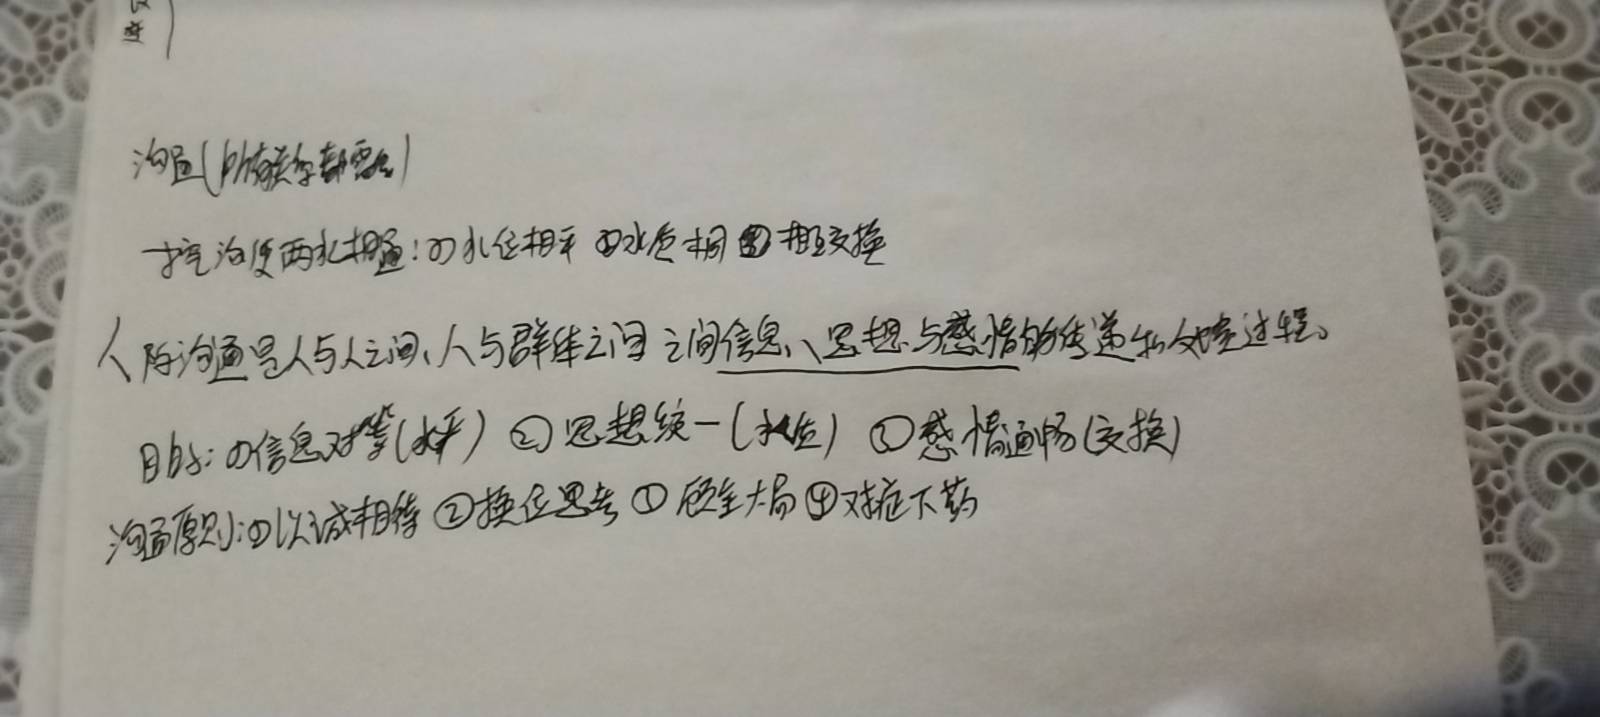 沟通(所有关系都需要)
挖沟使两水相通:①水位相平 ②水质相同 ③相互交换
人际沟通是人与人之间、人与群体之间之间信息、思想与感情的传递和处理过程。
目的:①信息对等(水平) ②思想统一(水质) ③感情通畅(交换)
沟通原则:①以诚相待 ②换位思考 ③顾全大局 ④对症下药